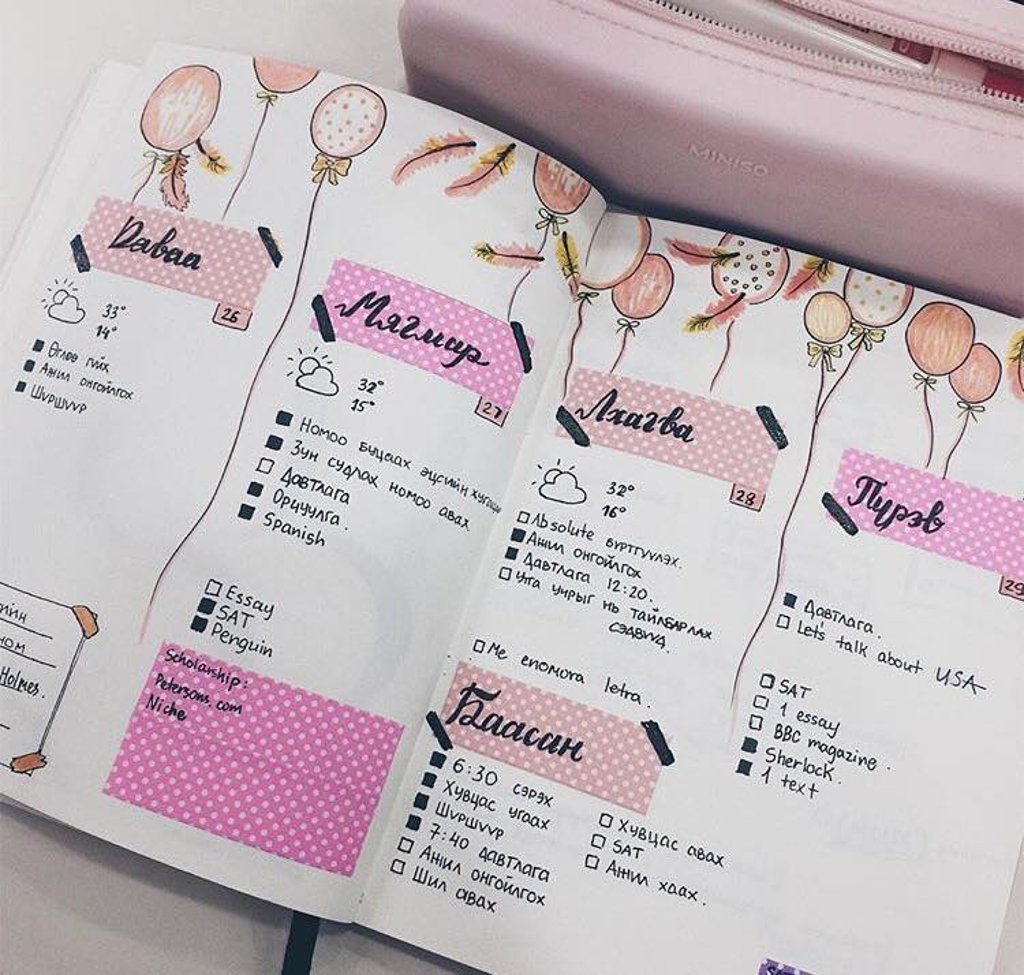 MINISO
Даваа
26
33°
14°
Өглөө гүйх
Ажил онгойлгох
Шүршүүр
Мягмар
27
32°
15°
Номоо буцаах эцсийн хугацаа
Зун судлах номоо авах
Давтлага
Орчуулга.
Spanish
Essay
SAT
Penguin
Scholarship:
Petersons.com
Niche
Holmes.
Лхагва
28
32°
16°
Absolute бүртгүүлэх.
Ажил онгойлгох
Давтлага 12:20.
Утга учрыг нь тайлбарлах
сэдвүүд.
Me enomora letra.
Пүрэв
29
Давтлага.
Let's talk about USA
SAT
1 essay
BBC magazine.
Sherlock.
1 text
Баасан
6:30 сэрэх
Хувцас угаах
Шүршүүр
7:40 давтлага
Ажил онгойлгох
Шил авах
Хувцас авах
SAT
Ажил хаах.